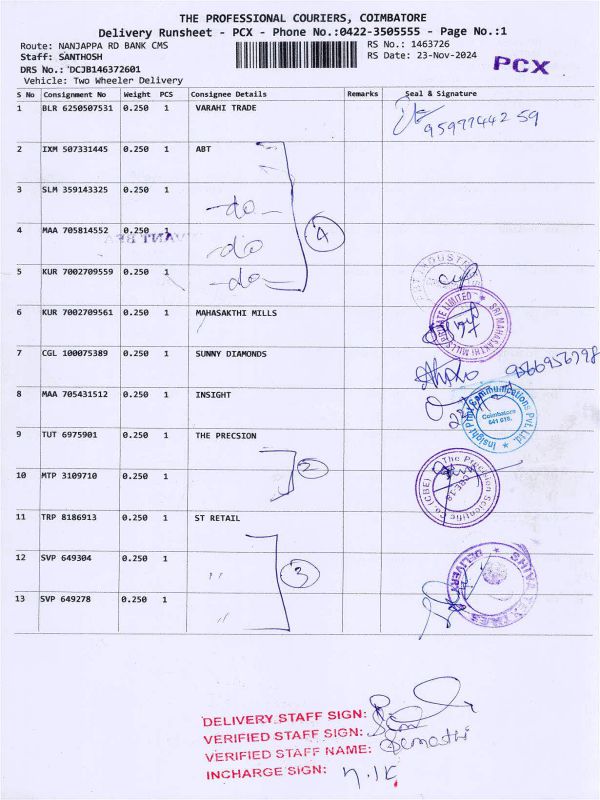 THE PROFESSIONAL COURIERS, COIMBATORE
Delivery Runsheet - PCX - Phone No.:0422-3505555 - Page No.:1
Route: NANJAPPA RD BANK CMS
RS No.: 1463726
Staff: SANTHOSH
RS Date: 23-Nov-2024
PCX
DRS No.: DCJB146372601
Vehicle: Two Wheeler Delivery
S No Consignment No Weight PCS Consignee Details Remarks Seal & Signature
1 BLR 6250507531 0.250 1 VARAHI TRADE
9597744259
2 IXM 507331445 0.250 1 ABT
3 SLM 359143325 0.250 1
-do-
4 MAA 705814552 0.250 1
4
do
5 KUR 7002709559 0.250 1
-do-
6 KUR 7002709561 0.250 1 MAHASAKTHI MILLS
SRI MAHASAKTHI MILLS PRIVATE LIMITED
7 CGL 100075389 0.250 1 SUNNY DIAMONDS
9566956798
8 MAA 705431512 0.250 1 INSIGHT
Insight Communications Pvt. Ltd.
Coimbatore
641 018.
9 TUT 6975901 0.250 1 THE PRECSION
2
10 MTP 3109710 0.250 1
The Precision Scientific Co (CBE)
CBE-18
11 TRP 8186913 0.250 1 ST RETAIL
12 SVP 649304 0.250 1
"
3
DELIVERY
13 SVP 649278 0.250 1
"
DELIVERY STAFF SIGN:
VERIFIED STAFF SIGN:
VERIFIED STAFF NAME:
INCHARGE SIGN: